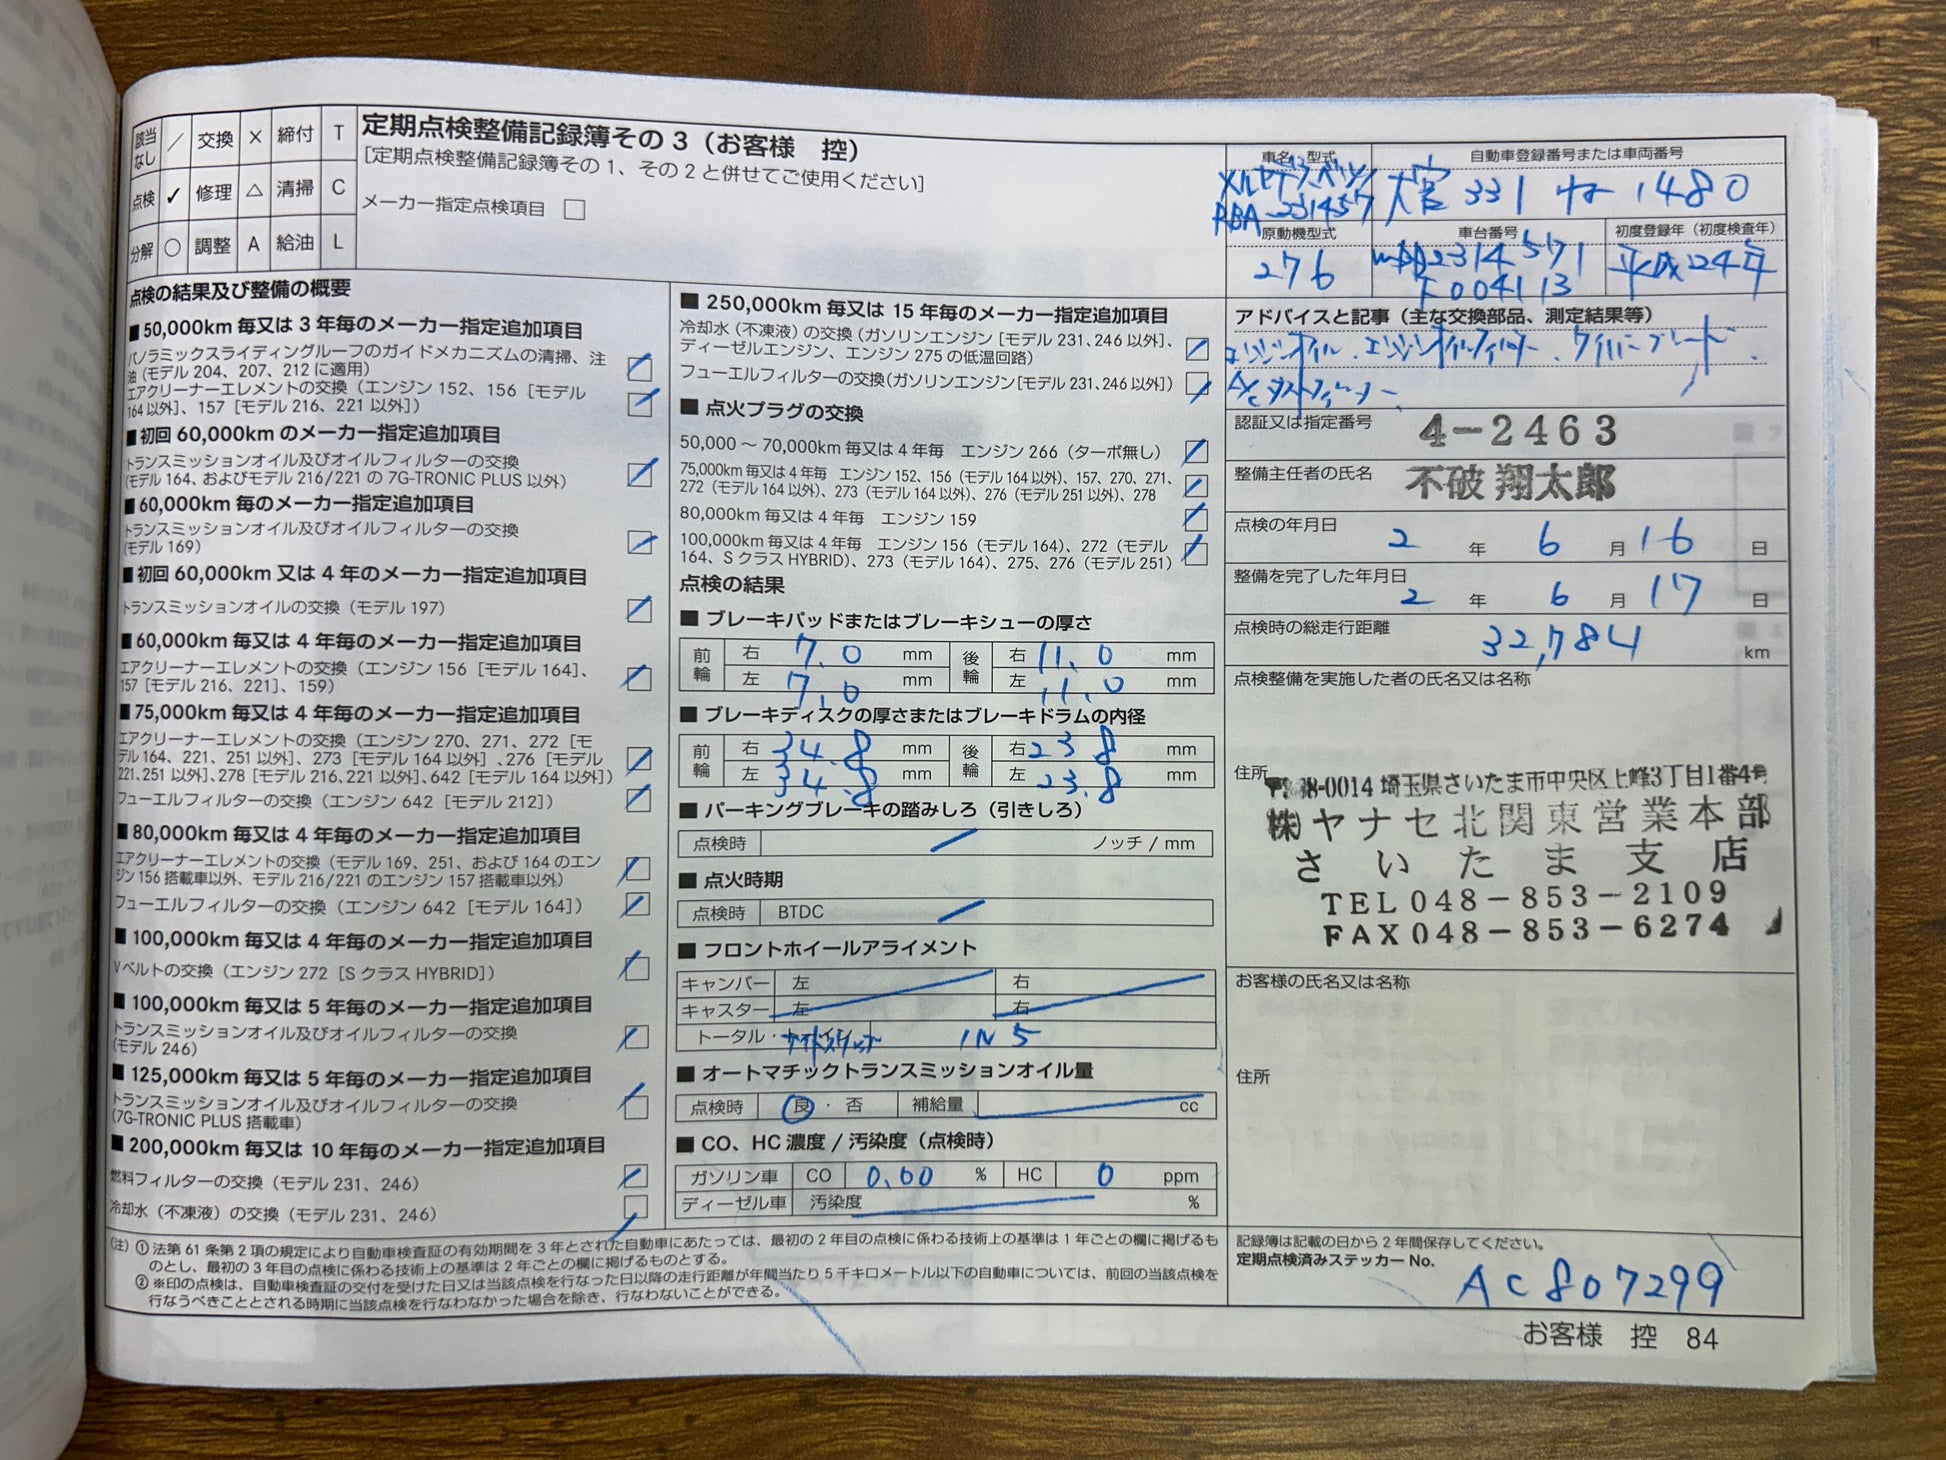 該当なし ／ 交換 × 締付 T
点検 ✓ 修理 △ 清掃 C
分解 ○ 調整 A 給油 L
定期点検整備記録簿その3（お客様　控）
[定期点検整備記録簿その1、その2と併せてご使用ください]
メーカー指定点検項目 □
点検の結果及び整備の概要
■50,000km 毎又は3年毎のメーカー指定追加項目
パノラミックスライディングルーフのガイドメカニズムの清掃、注
油（モデル 204、207、212 に適用）
エアクリーナーエレメントの交換（エンジン 152、156［モデル
164 以外］、157［モデル 216、221 以外］）
■初回 60,000km のメーカー指定追加項目
トランスミッションオイル及びオイルフィルターの交換
（モデル 164、およびモデル 216/221 の 7G-TRONIC PLUS 以外）
■60,000km 毎のメーカー指定追加項目
トランスミッションオイル及びオイルフィルターの交換
（モデル 169）
■初回 60,000km 又は 4 年毎のメーカー指定追加項目
トランスミッションオイルの交換（モデル 197）
■60,000km 毎又は 4 年毎のメーカー指定追加項目
エアクリーナーエレメントの交換（エンジン 156［モデル 164］、
157［モデル 216、221］、159）
■75,000km 毎又は 4 年毎のメーカー指定追加項目
エアクリーナーエレメントの交換（エンジン 270、271、272［モ
デル 164、221、251 以外］、273［モデル 164 以外］、276［モデル
221、251 以外］、278［モデル 216、221 以外］、642［モデル 164 以外］）
フューエルフィルターの交換（エンジン 642［モデル 212］）
■80,000km 毎又は 4 年毎のメーカー指定追加項目
エアクリーナーエレメントの交換（モデル 169、251、および 164 のエン
ジン 156 搭載車以外、モデル 216/221 のエンジン 157 搭載車以外）
フューエルフィルターの交換（エンジン 642［モデル 164］）
■100,000km 毎又は 4 年毎のメーカー指定追加項目
Vベルトの交換（エンジン 272［S クラス HYBRID］）
■100,000km 毎又は 5 年毎のメーカー指定追加項目
トランスミッションオイル及びオイルフィルターの交換
（モデル 246）
■125,000km 毎又は 5 年毎のメーカー指定追加項目
トランスミッションオイル及びオイルフィルターの交換
（7G-TRONIC PLUS 搭載車）
■200,000km 毎又は 10 年毎のメーカー指定追加項目
燃料フィルターの交換（モデル 231、246）
冷却水（不凍液）の交換（モデル 231、246）
■ 250,000km 毎又は 15 年毎のメーカー指定追加項目
冷却水（不凍液）の交換（ガソリンエンジン［モデル 231、246 以外］、
ディーゼルエンジン、エンジン 275 の低温回路）
フューエルフィルターの交換（ガソリンエンジン［モデル 231、246 以外］）
■ 点火プラグの交換
50,000 ～ 70,000km 毎又は 4 年毎　エンジン 266（ターボ無し）
75,000km 毎又は 4 年毎　エンジン 152、156（モデル 164 以外）、157、270、271、
272（モデル 164 以外）、273（モデル 164 以外）、276（モデル 251 以外）、278
80,000km 毎又は 4 年毎　エンジン 159
100,000km 毎又は 4 年毎　エンジン 156（モデル 164）、272（モデル
164、S クラス HYBRID）、273（モデル 164）、275、276（モデル 251）
点検の結果
■ ブレーキパッドまたはブレーキシューの厚さ
前輪 右 7.0 mm 後輪 右 11.0 mm
左 7.0 mm 左 11.0 mm
■ ブレーキディスクの厚さまたはブレーキドラムの内径
前輪 右 34.8 mm 後輪 右 23.8 mm
左 34.8 mm 左 23.8 mm
■ パーキングブレーキの踏みしろ（引きしろ）
点検時 ノッチ / mm
■ 点火時期
点検時 BTDC
■ フロントホイールアライメント
キャンバー 左 右
キャスター 左 右
トータル・ サイドスリップ IN 5
■ オートマチックトランスミッションオイル量
点検時 良 ・ 否 補給量 cc
■ CO、HC 濃度 / 汚染度（点検時）
ガソリン車 CO 0.00 % HC 0 ppm
ディーゼル車 汚染度 %
車名・型式 自動車登録番号または車両番号
メルセデス・ベンツ
RBA-231457
大宮 331 1480
原動機型式 車台番号 初度登録年（初度検査年）
276 WDD2314571
F004113 平成24年
アドバイスと記事（主な交換部品、測定結果等）
エンジンオイル、エンジンオイルフィルター、ワイパーブレード、
A/Cダストフィルター、
認証又は指定番号 4－2463
整備主任者の氏名 不破 翔太郎
点検の年月日 2 年 6 月 16 日
整備を完了した年月日 2 年 6 月 17 日
点検時の総走行距離 32,784 km
点検整備を実施した者の氏名又は名称
住所 〒338-0014 埼玉県さいたま市中央区上峰3丁目1番4号
㈱ヤナセ北関東営業本部
さいたま支店
TEL 048－853－2109
FAX 048－853－6274
お客様の氏名又は名称
住所
（注）① 法第 61 条第 2 項の規定により自動車検査証の有効期間を 3 年とされた自動車にあたっては、最初の 2 年目の点検に係わる技術上の基準は 1 年ごとの欄に掲げるも
のとし、最初の 3 年目の点検に係わる技術上の基準は 2 年ごとの欄に掲げるものとする。
② ※印の点検は、自動車検査証の交付を受けた日又は当該点検を行なった日以降の走行距離が年間当たり 5 千キロメートル以下の自動車については、前回の当該点検を
行なうべきこととされる時期に当該点検を行なわなかった場合を除き、行なわないことができる。
記録簿は記載の日から 2 年間保存してください。
定期点検済みステッカー No.
AC807299
お客様　控　84